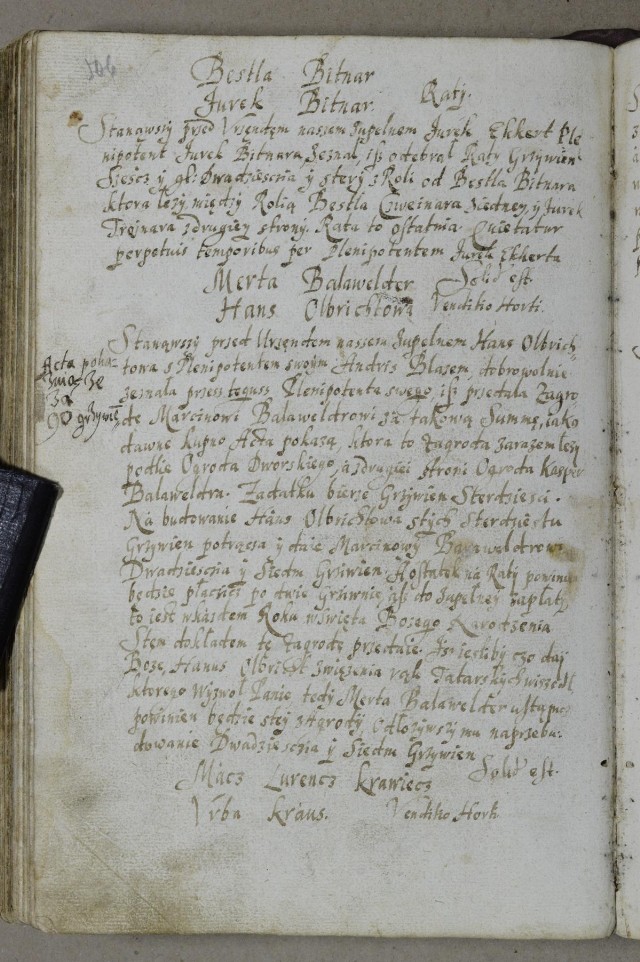 106
Bestla Bitnar
Jurek Bitnar. Raty.
Stanąwsiy przed Vrzendem naszem zupelnem Jurek Ekkert Ple-
nipotent Jurek Bitnara zeznał, isz odebrał Raty Grzywien
Szescz y gr. Dwadziescia y stery z Roli od Bestla Bitnara
ktora lezy między Rolią Bestla Czweinara z iedney, y Jurek
Treinara z drugiey strony. Rata to ostatnia Quietatur
perpetuis temporibus per Plenipotentem Jurek Ekkerta
Merta Balawelder Solid est.
Hans Olbrichtowa Venditio Horti.
Stanąwszy przed Urzendem naszem zupelnem Hans Olbrich-
towa s Plenipotentem swoym Andris Blasem, dobrowolnie
zeznała przess tegusz Plenipotenta swego, isz przedala Zagro-
de Marcinowi Balaweldrowi za takową Summę, iako
dawne kupno Acta pokazą, ktora to zagroda zarazem lezy
podlie Ogroda Dworskiego, a z drugiei stroni Ogroda Kasper
Balaweldra. Zadatku bierze Grzywien Sterdziesci.
Na budowanie Hans Olbrichtowa s tych Sterdziestu
Grzywien potrąca y daie Marcinowy Balaweldrowi
Dwadziescia y Siedm Grzywien. A ostatek na Raty powinien
będzie płacicz po dwie Grziwnie, asz do zupelney zapłaty
to iest w kazdem Roku w święta Bozego Narodzenia
S tem dokładem tę zagrodę przedaie. Isz iesliby czo daj
Boze, Hanus Olbricht z więzenia rąk Tatarskych wiszedl
ktorego wyzwol Panie tedy Merta Balawelder ustąpicz
powinien będzie s tey zagrody, odłozywszy mu na przebu-
dowanie Dwadziescia y Siedm Grzywien
Solid est.
Mácz Lurencz Krawiecz
Vrba Kraus. Venditio Horti
Acta poka-
Za
90 grzywien